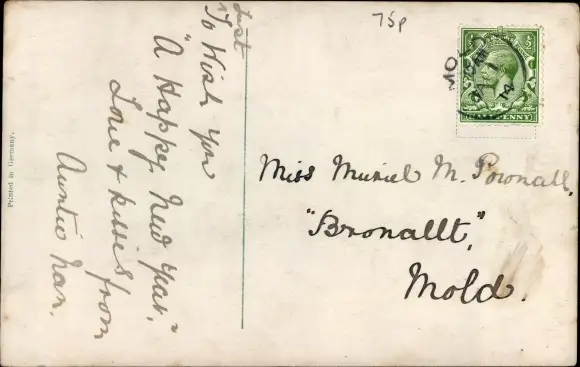 Just
To Wish you
"A Happy New Year,"
Love & kisses from
Auntie Nan.
Printed in Germany.
75p
MOLD
JA 1
14
HALFPENNY
Miss Muriel M. Pownall,
"Bronallt",
Mold.